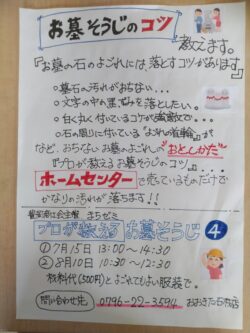 お墓そうじのコツ
教えます。
『お墓の石のよごれには、落とすコツがあります』
○墓石の汚れがおちない…
○文字の中の黒ずみを落としたい。
○白く丸く付いているコケが強敵で…
○石の周りに付いている『よごれの首輪』が
など、おちない お墓のよごれの"おとしかた"
『プロが教えるお墓そうじのコツ』…
ホームセンターで売っているものだけで
かなりの汚れが落ちます!!
まちゼミ
プロが教えるお墓そうじ ④
① 7月15日 13:00～14:30
② 8月10日 10:30～12:30
材料代(500円)とよごれてもよい服装で。
問い合わせ先 0796-22-3594 おおきた石材店